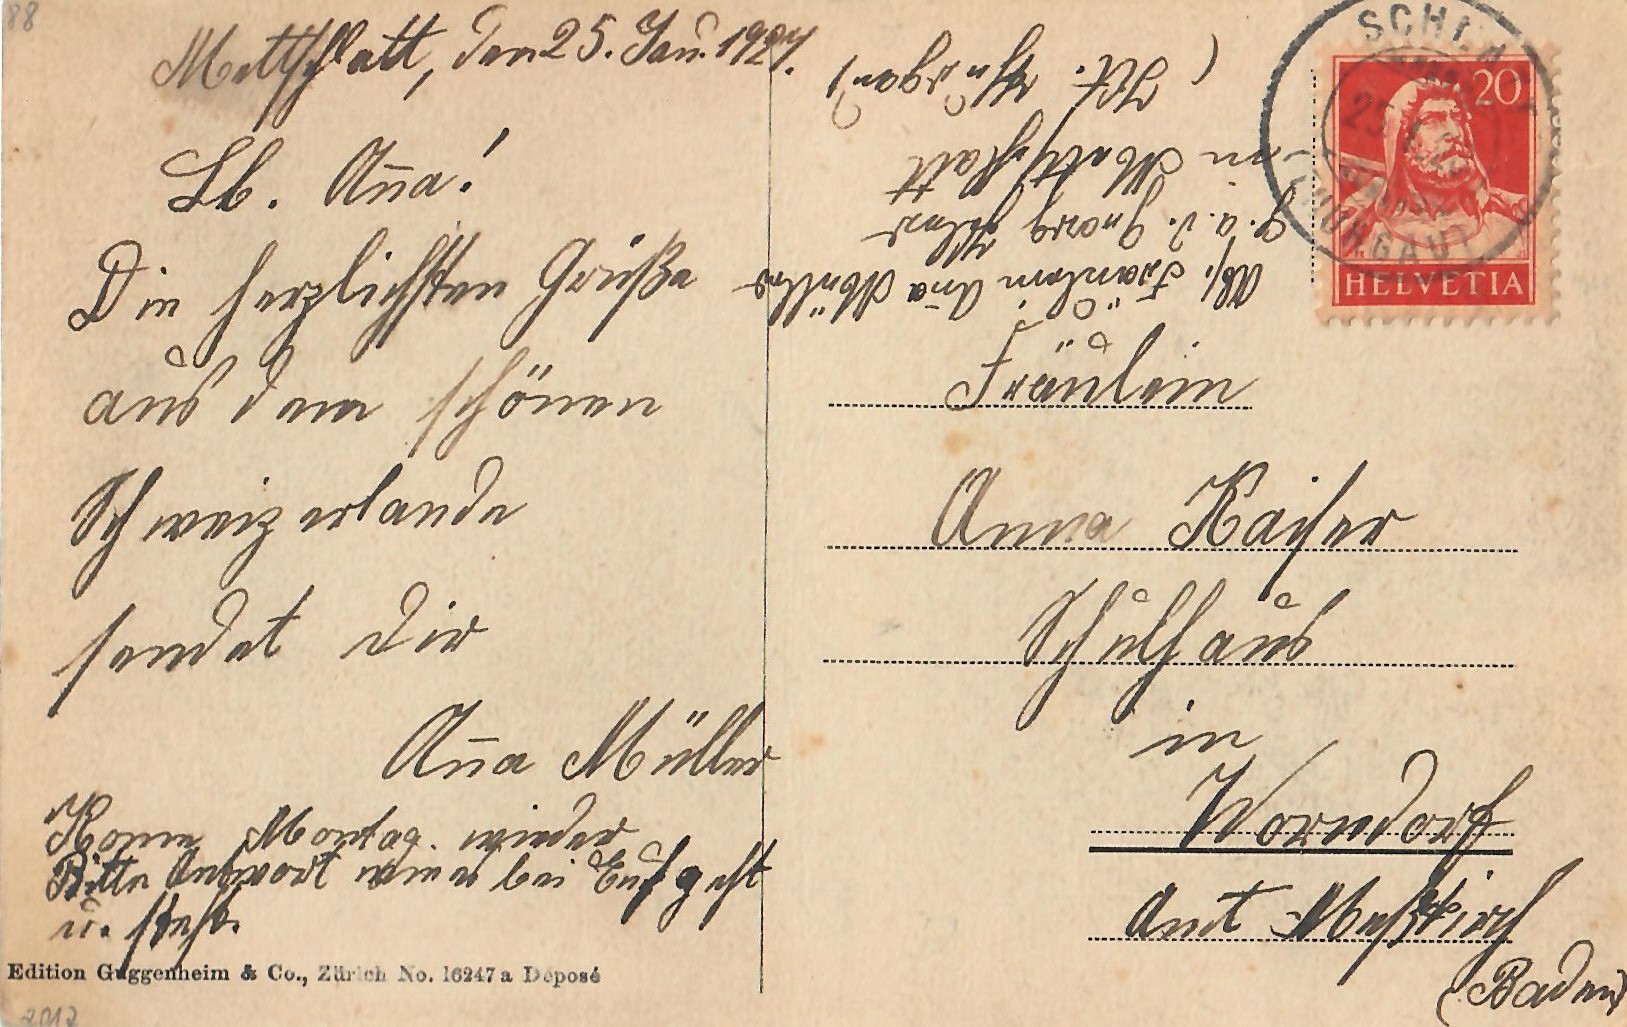 88
Mettschlatt, den 25. Jan. 1927.
Lb. Aña!
Die herzlichsten Grüße
aus dem schönen
Schweizerlande
sendet dir
Aña Müller
Komme Montag wieder
Bitte Antwort wie es bei Euch geht
u. steht.
Edition Guggenheim & Co., Zürich No. 16247 a Déposé
2017
Abs. Fräulein Aña Müller
b. a. d.
in Mettschlatt
(Kt. Thurgau)
SCHLATT
25
THURGAU
20
HELVETIA
Fräulein
Anna Kaiser
Schulhaus
in
Worndorf
Amt Meßkirch
(Baden)